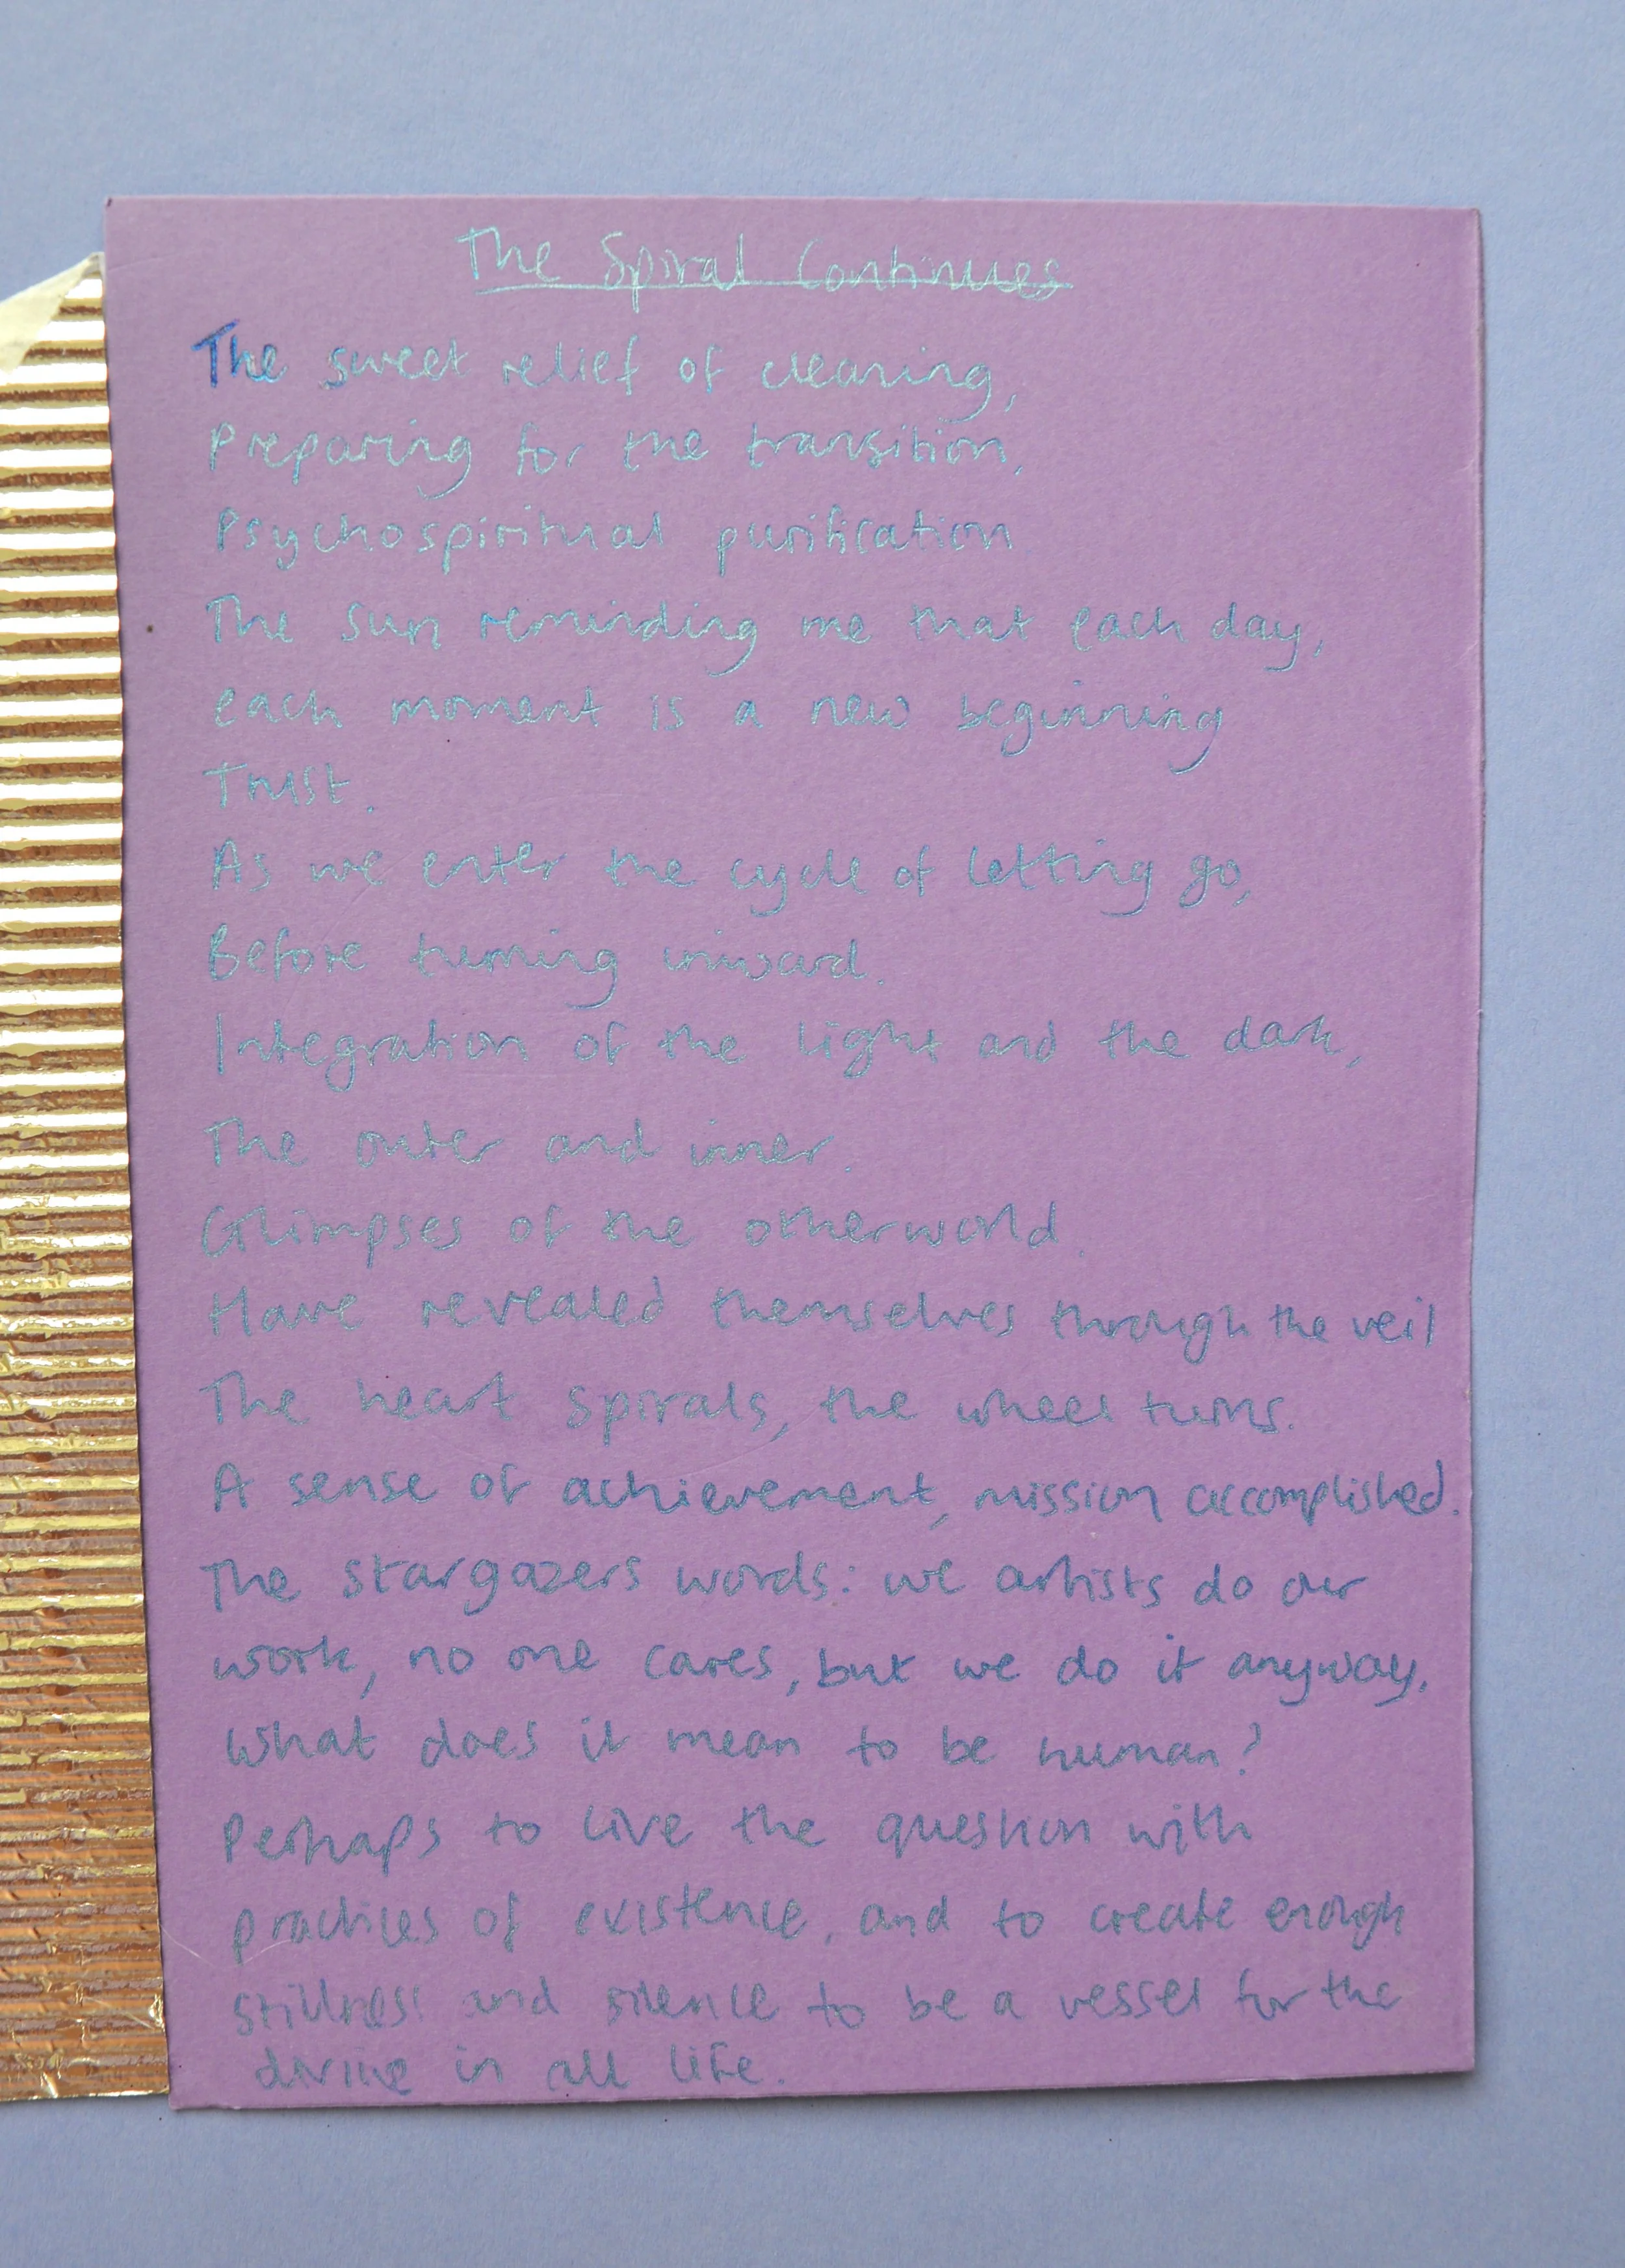 The Spiral Continues
The sweet relief of clearing,
Preparing for the transition,
Psychospiritual purification
The sun reminding me that each day,
each moment is a new beginning
Trust.
As we enter the cycle of letting go,
Before turning inward.
Integration of the light and the dark,
The outer and inner.
Glimpses of the otherworld.
Have revealed themselves through the veil
The heart spirals, the wheel turns.
A sense of achievement, mission accomplished.
The stargazers words: we artists do our
work, no one cares, but we do it anyway.
What does it mean to be human?
Perhaps to live the question with
practices of existence, and to create enough
stillness and silence to be a vessel for the
divine in all life.